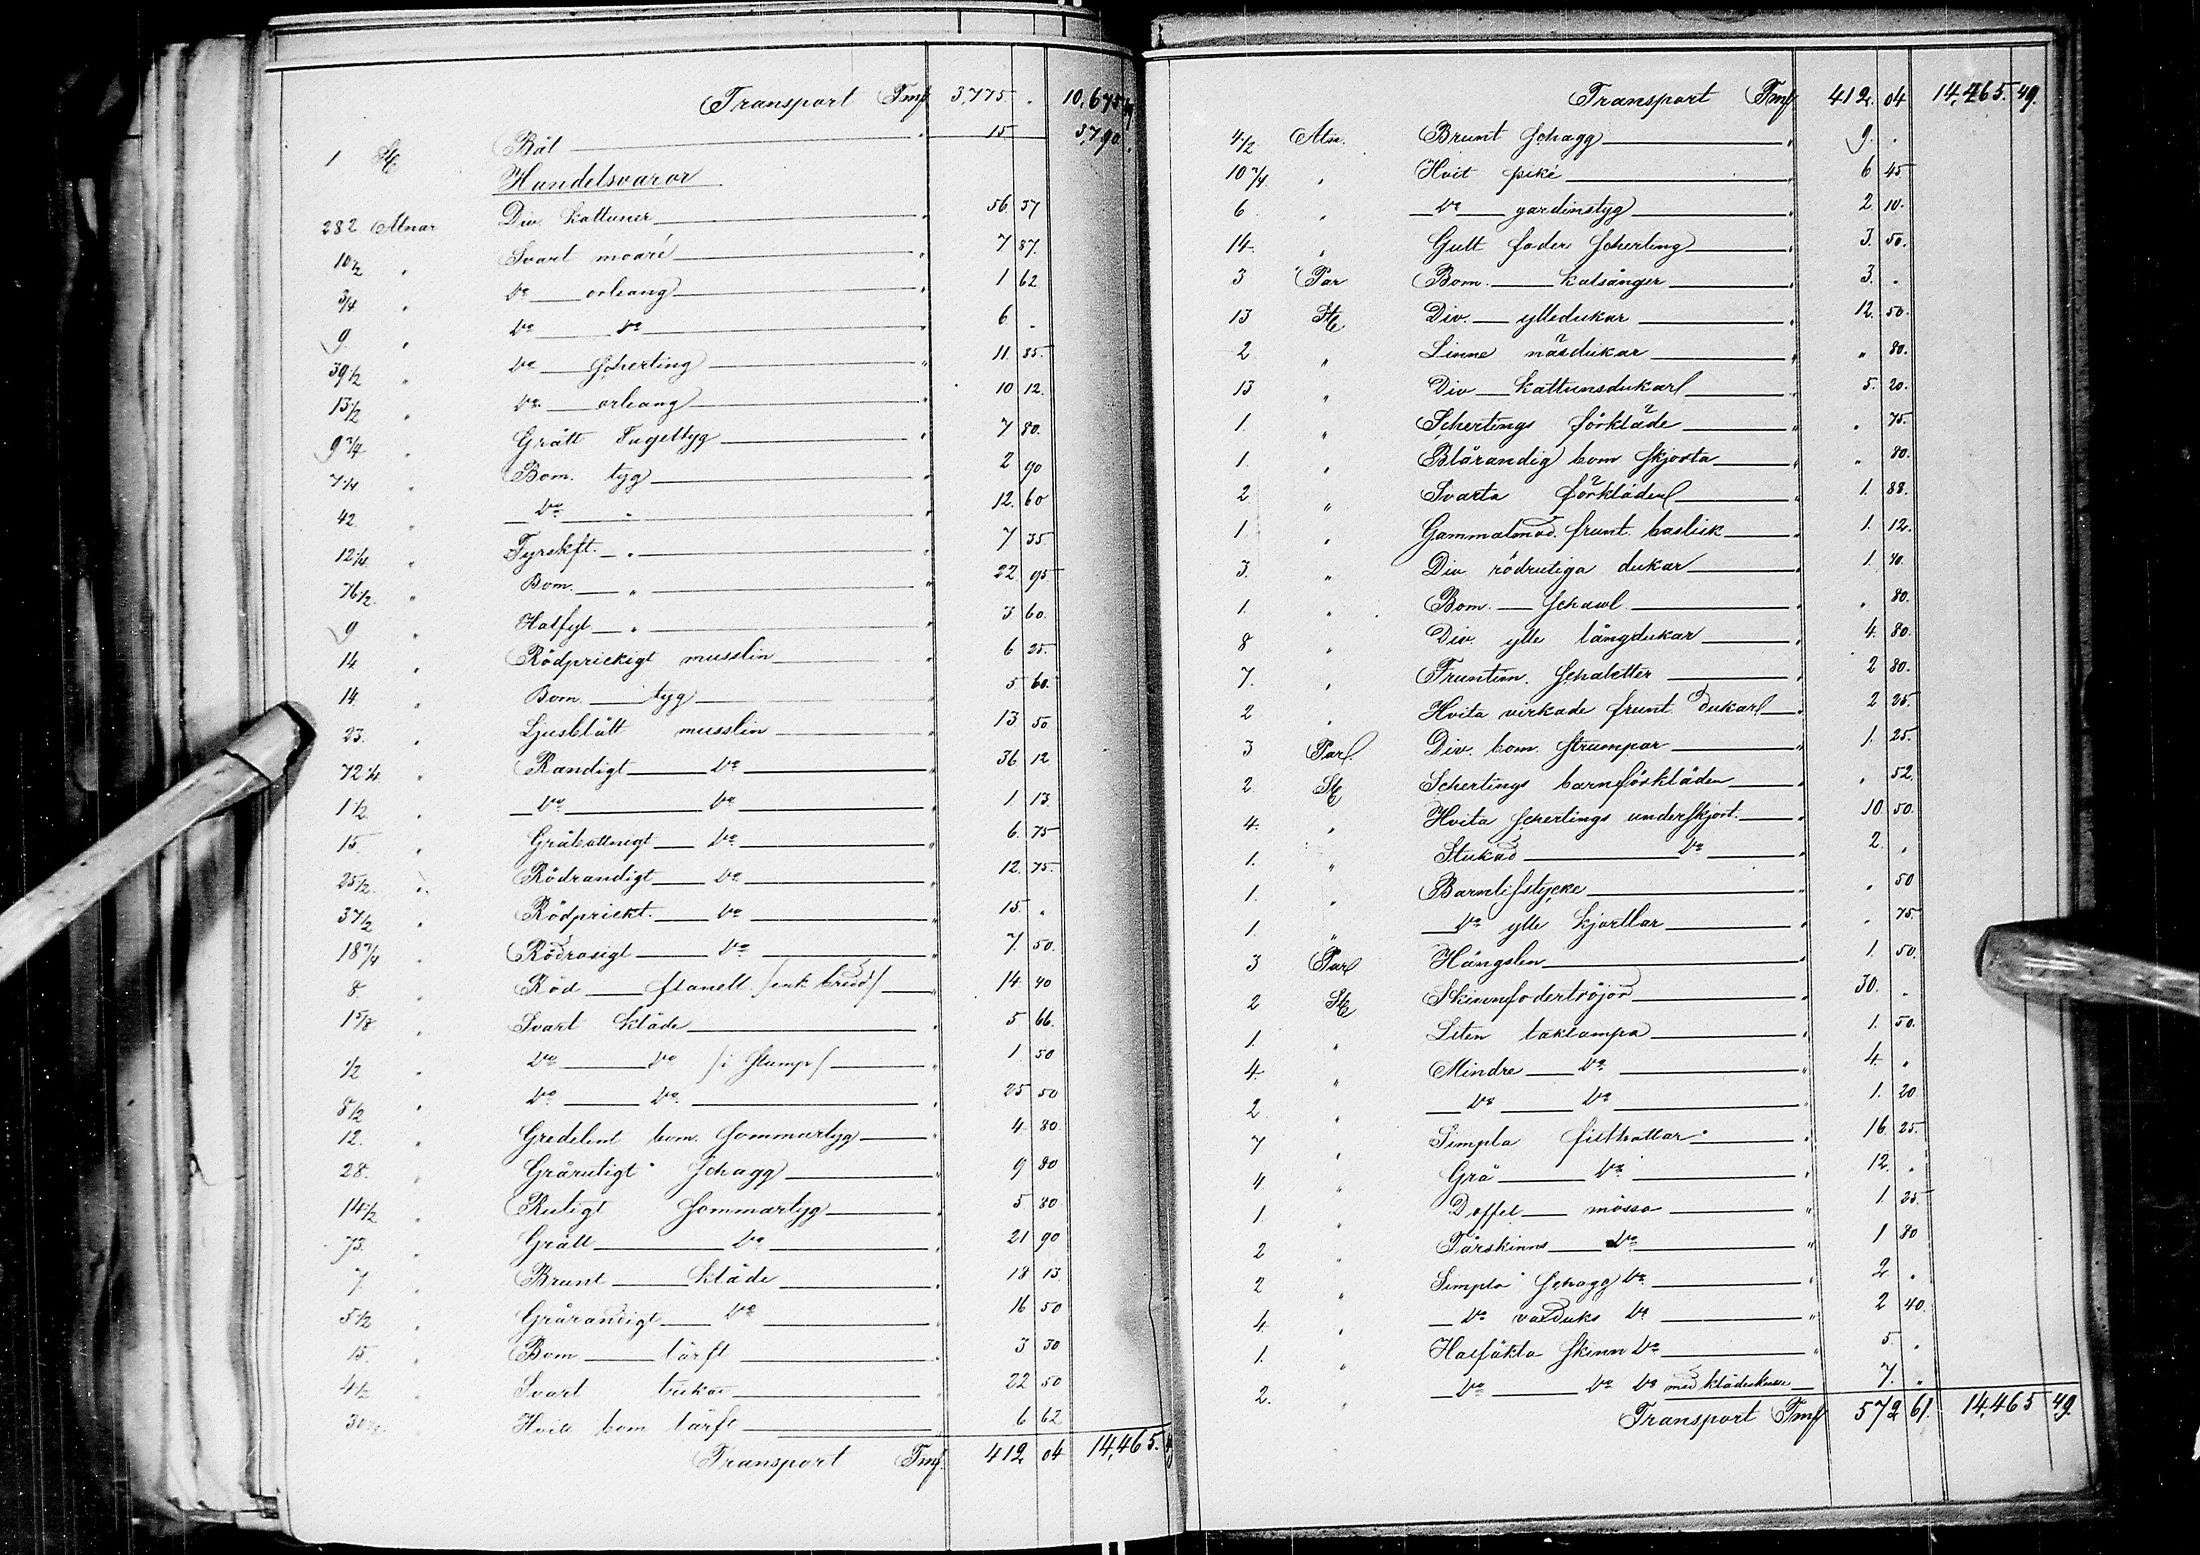 Transport Fmk 3,775 . 10,675
1 St. Båt " 15 3,790 .
Handelsvaror
282 Alnar Div. kattuner " 56 37
10 1/2 " Svart moaré " 7 87.
3/4 " Do orleang " 1 62
9 " Do Do " 6. .
39 1/2 " Do Scherting " 11. 85.
13 1/2 " Do orleang " 10 12.
9 3/4 " Grått Tygeltyg " 7 80.
7 1/4 " Bom. tyg " 2 90
42 " Do " " 12. 60
12 1/4 " Tyrskft. " " 7 35
76 1/2 " Bom. " " 22 95
9 " Halfyl " " 3 60.
14 " Rödprickigt musslin " 6 25.
14 " Bom tyg " 5 60.
23. " Ljusblått musslin " 13 50
72 1/4 " Randigt Do " 36 12
1 1/2 " Do Do " 1 13.
15. " Gråbottnigt Do " 6. 75
25 1/2 " Rödrandigt Do " 12. 75.
37 1/2 " Rödprickt. Do " 15. "
18 3/4 " Rödrosigt Do " 7. 50.
8 " Röd flanell /enk bredd/ " 14. 40
1 5/8 " Svart kläde " 5 66.
1/2 " Do Do /i Stump/ " 1 50
8 1/2 " Do Do " 25 50
12. " Gredelint bom. Sommartyg " 4. 80
28. " Grårutigt Schagg " 9 80
14 1/2 " Rutigt Sommartyg " 5 80
73. " Grått Do " 21 90
7. " Brunt kläde " 18 13.
5 1/2 " Grårandigt Do " 16 50
15. " Bom lärft " 3 30
4 1/2 " Svart trikot " 22 50
30 " Hvitt bom lärft " 6 62
Transport Fmk. 412 04 14,465.
Transport Fmk 412. 04 14,465. 49.
4 1/2 Aln. Brunt Schagg " 9. .
10 3/4 " Hvit piké " 6 45
6 " Do gardinstyg " 2. 10.
14. " Gult foder Scherting " 3. 50.
3 Par Bom. kalsånger " 3. .
13 St. Div. ylledukar " 12. 50.
2 " Linne näsdukar " " 80.
13 " Div kattunsdukar " 5. 20.
1. " Schertings förkläde " " 75.
1. " Blårandig bom skjorta " " 80.
2 " Svarta förkläden " 1. 88.
1. " Gammalmod. frunt. baslik " 1. 12.
3. " Div rödrutiga dukar " 1. 40.
1. " Bom. Schawl " " 80.
8 " Div. ylle långdukar " 4. 80.
7. " Fruntim. Schaletter " 2 80.
2 " Hvita virkade frunt. dukar " 2 25.
3 Par Div. bom. strumpor " 1. 25.
2 St. Schertings barnförkläden " " 52.
4. " Hvita Schertings underskjort. " 10. 50.
1. " Stukad Do " 2. "
1. " Barnlifstycke " " 50
1. " Do ylle kjortlar " " 75.
3 Par Hängslen " 1. 50.
2 St. Skinnfodertröjor " 30. "
1. " Liten taklampa " 1. 50.
4. " Mindre Do " 4. "
2. " Do Do " 1. 20
7 " Simpla filthattar " 16. 25.
4 " Grå Do " 12. "
1. " Doffel mössa " 1 25.
2 " Fårskinns Do " 1 80
2 " Simpla Schagg Do " 2 "
4. " Do vaxduks Do " 2 40.
1. " Halfäkta Skinn Do " 5. "
2. " Do Do Do med klädeskulle 7. "
Transport Fmk 572 61. 14,465 49.